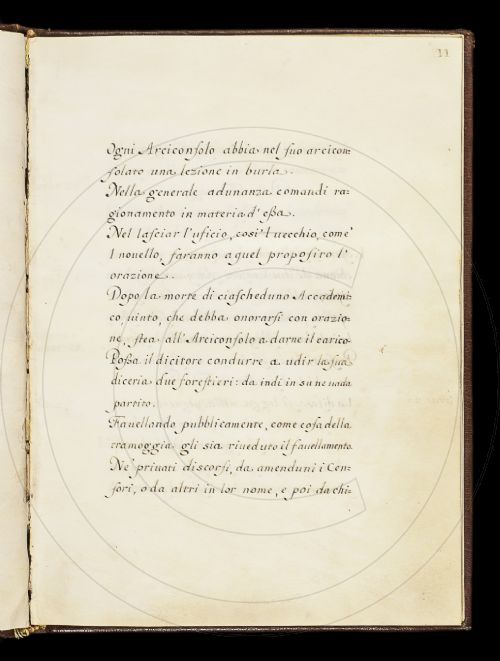 11
Ogni Arciconsolo abbia nel suo arcicon=
solato una lezione in burla.
Nella generale adunanza comandi ra=
gionamento in materia d'essa.
Nel lasciar l'uficio, cosi 'l vecchio, come'
l nouello, faranno a quel proposito l'
orazione.
Dopo la morte di ciascheduno Accademi=
co, uinto, che debba onorarsi con orazio=
ne, stea all'Arciconsolo à darne il carico.
Possa il dicitore condurre a udir la sua
diceria due forestieri: da indi in su ne uada
partito.
Fauellando pubblicamente, come cosa della
tramoggia gli sia riueduto il fauellamento.
Ne' priuati discorsi, da amenduni i Cen=
sori, o da altri in lor nome, e poi da chi=